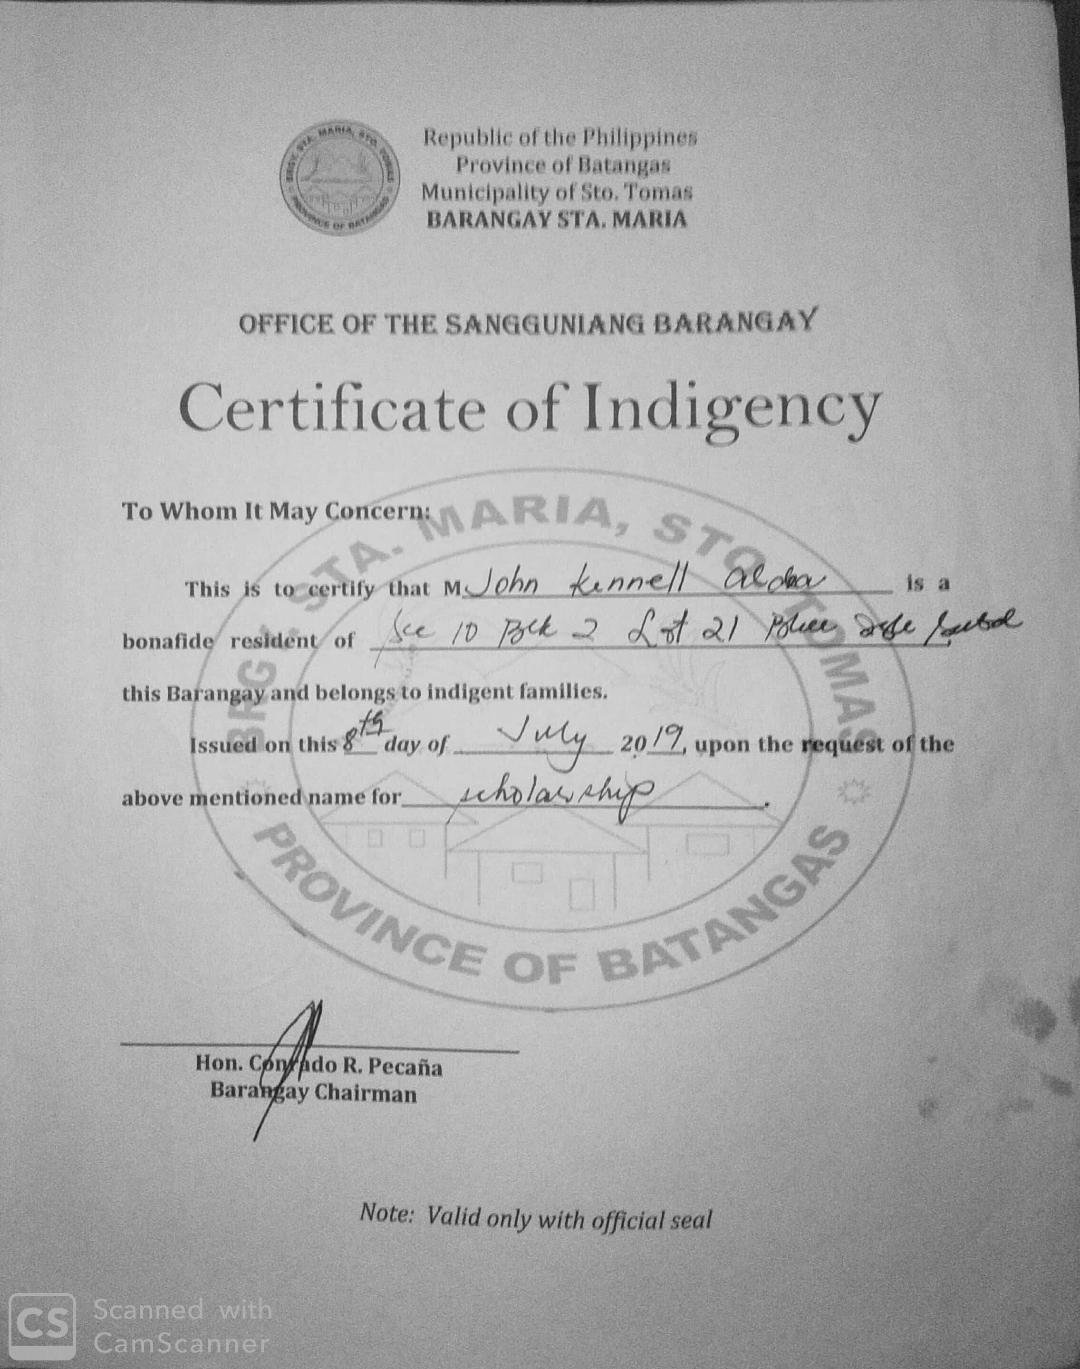 BRGY. STA. MARIA, STO. TOMAS
PROVINCE OF BATANGAS
Republic of the Philippines
Province of Batangas
Municipality of Sto. Tomas
BARANGAY STA. MARIA
OFFICE OF THE SANGGUNIANG BARANGAY
Certificate of Indigency
To Whom It May Concern:
This is to certify that M John Kennell is a
bonafide resident of 10 Blk 2 Lot 21
this Barangay and belongs to indigent families.
Issued on this 8th day of July 2019, upon the request of the
above mentioned name for scholarship.
BRG. STA. MARIA, STO. TOMAS
PROVINCE OF BATANGAS
Hon. Conrado R. Pecaña
Barangay Chairman
Note: Valid only with official seal
CS Scanned with
CamScanner